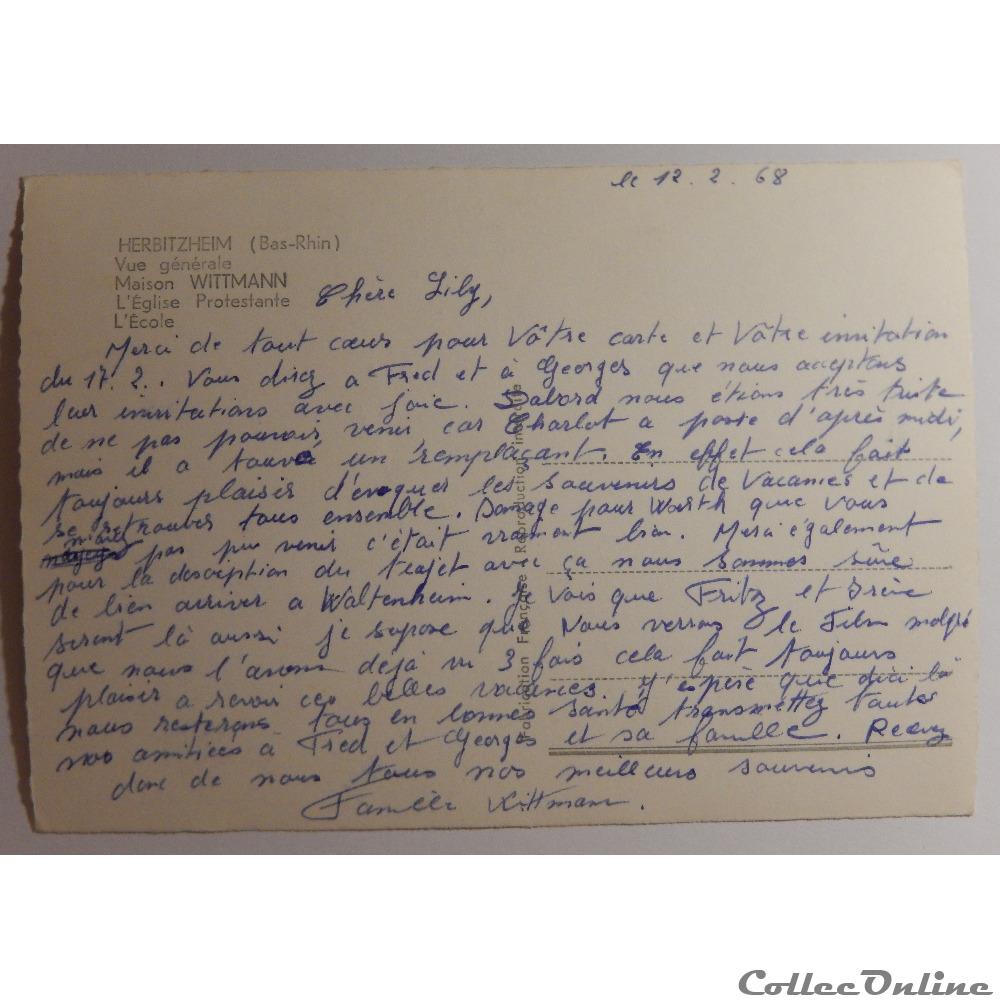 le 12. 2. 68
HERBITZHEIM (Bas-Rhin)
Vue générale
Maison WITTMANN
L'Église Protestante
L'École
Chère Lily,
Merci de tout cœur pour Vôtre carte et Vôtre invitation
du 17. 2.. Vous direz a Fred et à Georges que nous acceptons
leur invitations avec joie. Dabord nous étions très triste
de ne pas pouvoir venir car Charlot a poste d'après midi,
mais il a touvé un remplaçant. En effet cela fait
toujours plaisir d'évoquer les souvenirs de Vacances et de
se retrouver tous ensemble. Domage pour Wœrth que vous
n'avez pas puv venir c'était vraiment bien. Merci également
pour la desception du trajet avec ça nous sommes sûre
de bien arriver a Waltenheim. Je vois que Fritz et Irène
seront là aussi je supose que Nous verrons le Film malgré
que nous l'avons déjà vu 3 fois cela fait toujours
plaisir a revoir ces belles vacances. J'espère que dici là
nous resterons tous en bonnes santé transmettez toutes
nos amitiées a Fred et Georges et sa famille. Recevez
donc de nous tous nos meilleurs souvenirs
Famille Wittmann.
Fabrication Française Reproduction interdite
CollecOnline